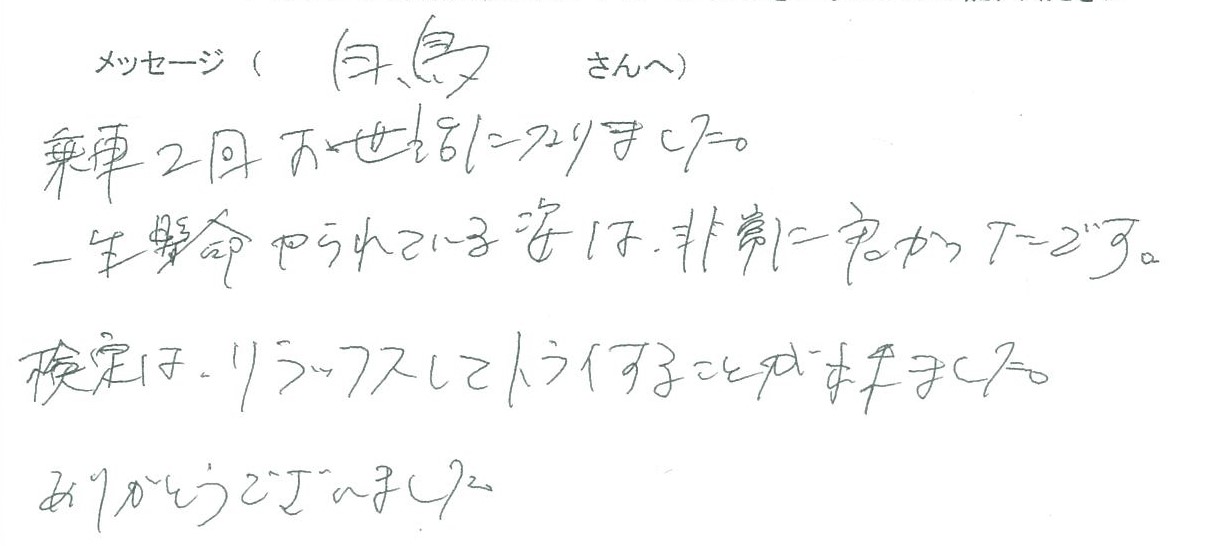 メッセージ（ 白鳥 さんへ）
乗車2回お世話になりました。
一生懸命やられている姿は、非常に良かったです。
検定は、リラックスしてトライすることが出来ました。
ありがとうございました。